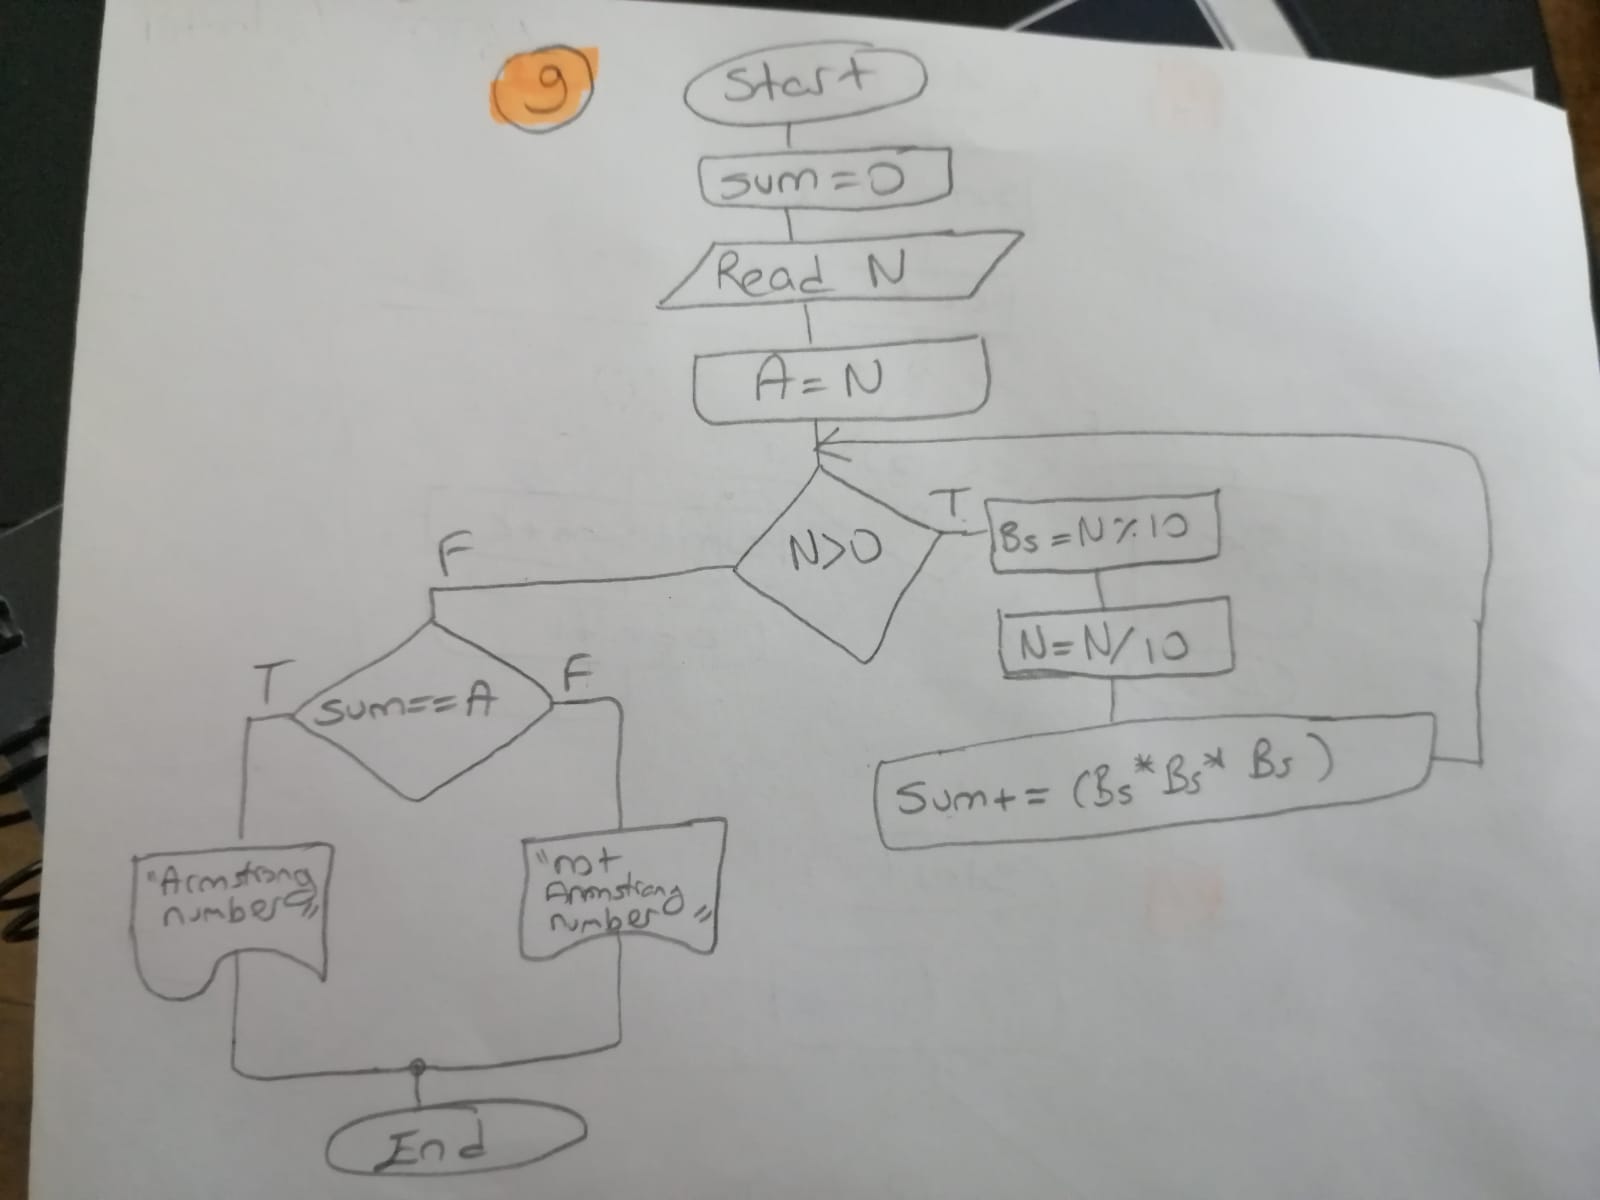 9
Start
sum=0
Read N
A=N
N>0
T
Bs=N%10
N=N/10
Sum+= (Bs*Bs* Bs)
F
sum==A
T
F
"Armstrong
number"
"not
Armstrong
number"
End